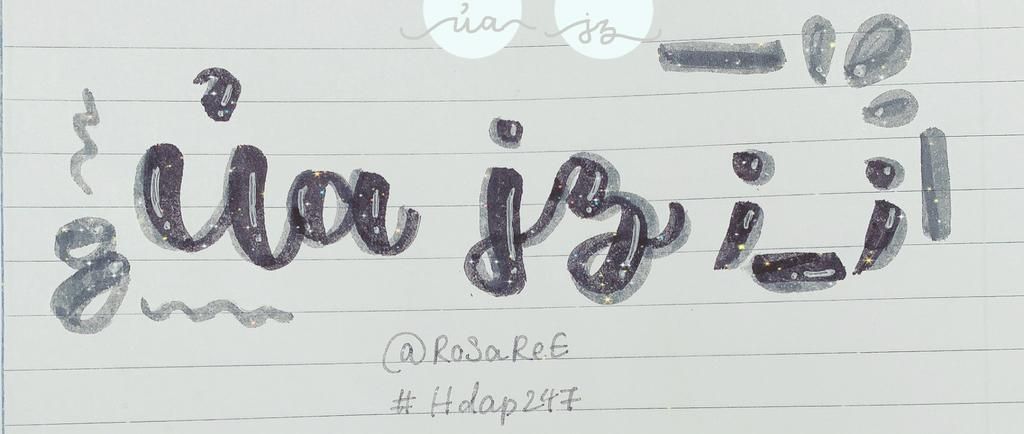 ủa jz
ủa jz ;_;
@RosaReE
#Hdap247